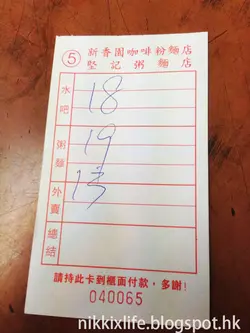 ⑤ 新香園咖啡粉麵店
堅記粥麵店
水吧 18
粥麵 19
外賣
總結
請持此卡到櫃面付款，多謝!
040065
nikkixlife.blogspot.hk